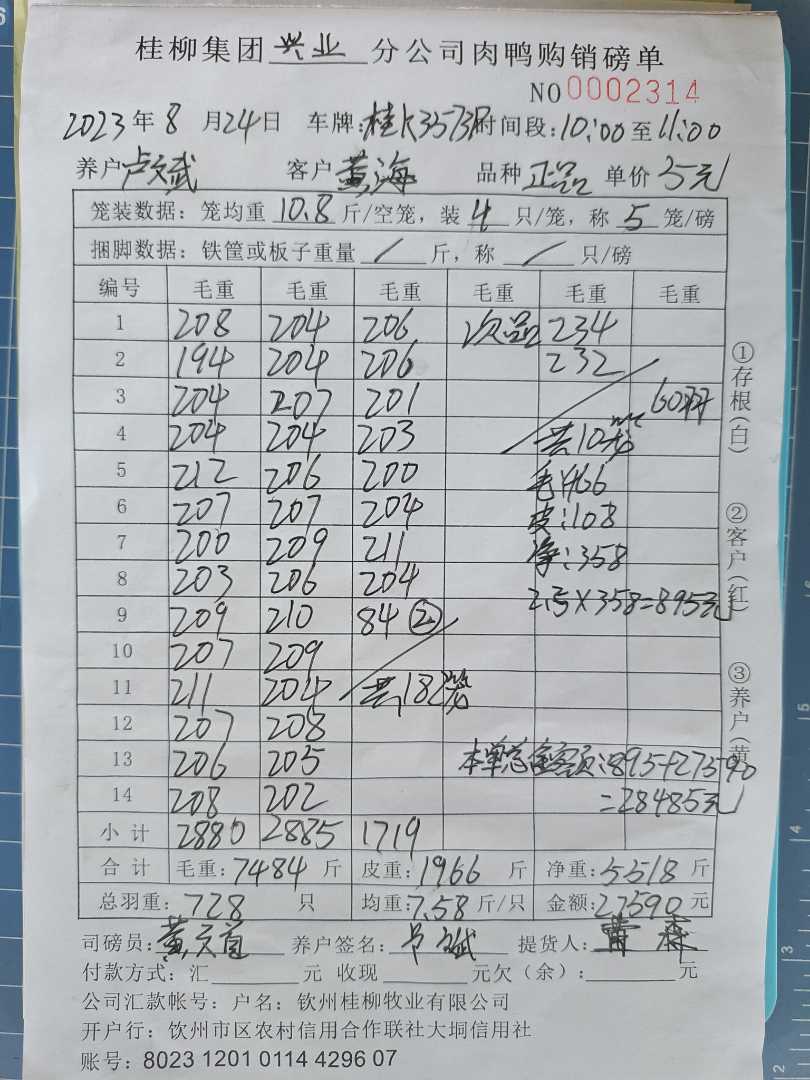 桂柳集团兴业分公司肉鸭购销磅单
NO 0002314
2023年8月24日 车牌:桂K3573R 时间段:10:00至11:00
养户卢文斌 客户黄海 品种正品 单价5元
笼装数据: 笼均重10.8斤/空笼, 装4只/笼, 称5笼/磅
捆脚数据: 铁筐或板子重量/斤, 称/只/磅
编号 毛重 毛重 毛重 毛重 毛重 毛重
1 208 204 206 次品 234
2 194 204 206 232
3 204 207 201 60羽
4 204 204 203 共10笼
5 212 206 200 毛:466
6 207 207 204 皮:108
7 200 209 211 净:358
8 203 206 204
9 209 210 84② 2.5×358=895元
10 207 209
11 211 204 共182笼
12 207 208
13 206 205 本单总金额:895+27590
14 208 202 =28485元
小计 2880 2885 1719
合计 毛重:7484斤 皮重:1966斤 净重:5518斤
总羽重:728只 均重:7.58斤/只 金额:27590元
司磅员: 养户签名: 提货人:
付款方式: 汇 元 收现 元欠(余): 元
公司汇款帐号: 户名: 钦州桂柳牧业有限公司
开户行: 钦州市区农村信用合作联社大垌信用社
账号: 8023 1201 0114 4296 07
①存根(白)
②客户(红)
③养户(黄